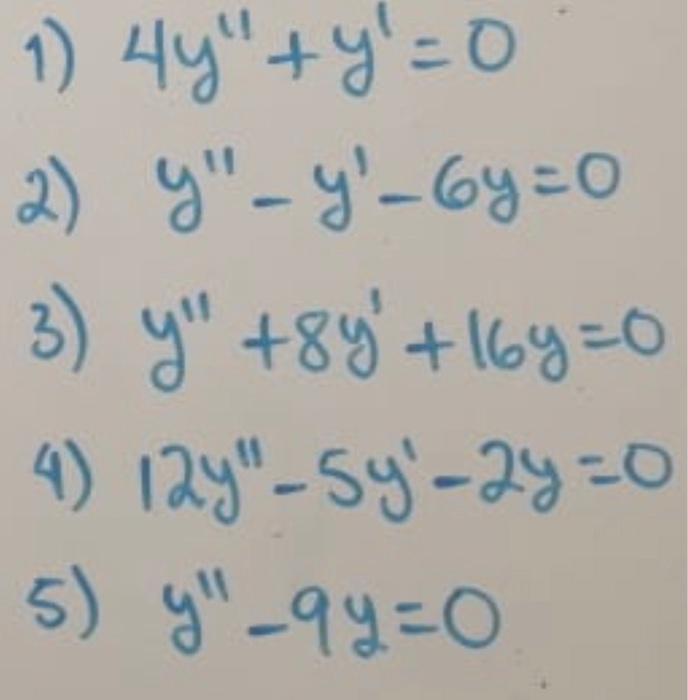 1) 4y" + y' = 0
2) y" - y' - 6y = 0
3) y" + 8y' + 16y = 0
4) 12y" - 5y' - 2y = 0
5) y" - 9y = 0